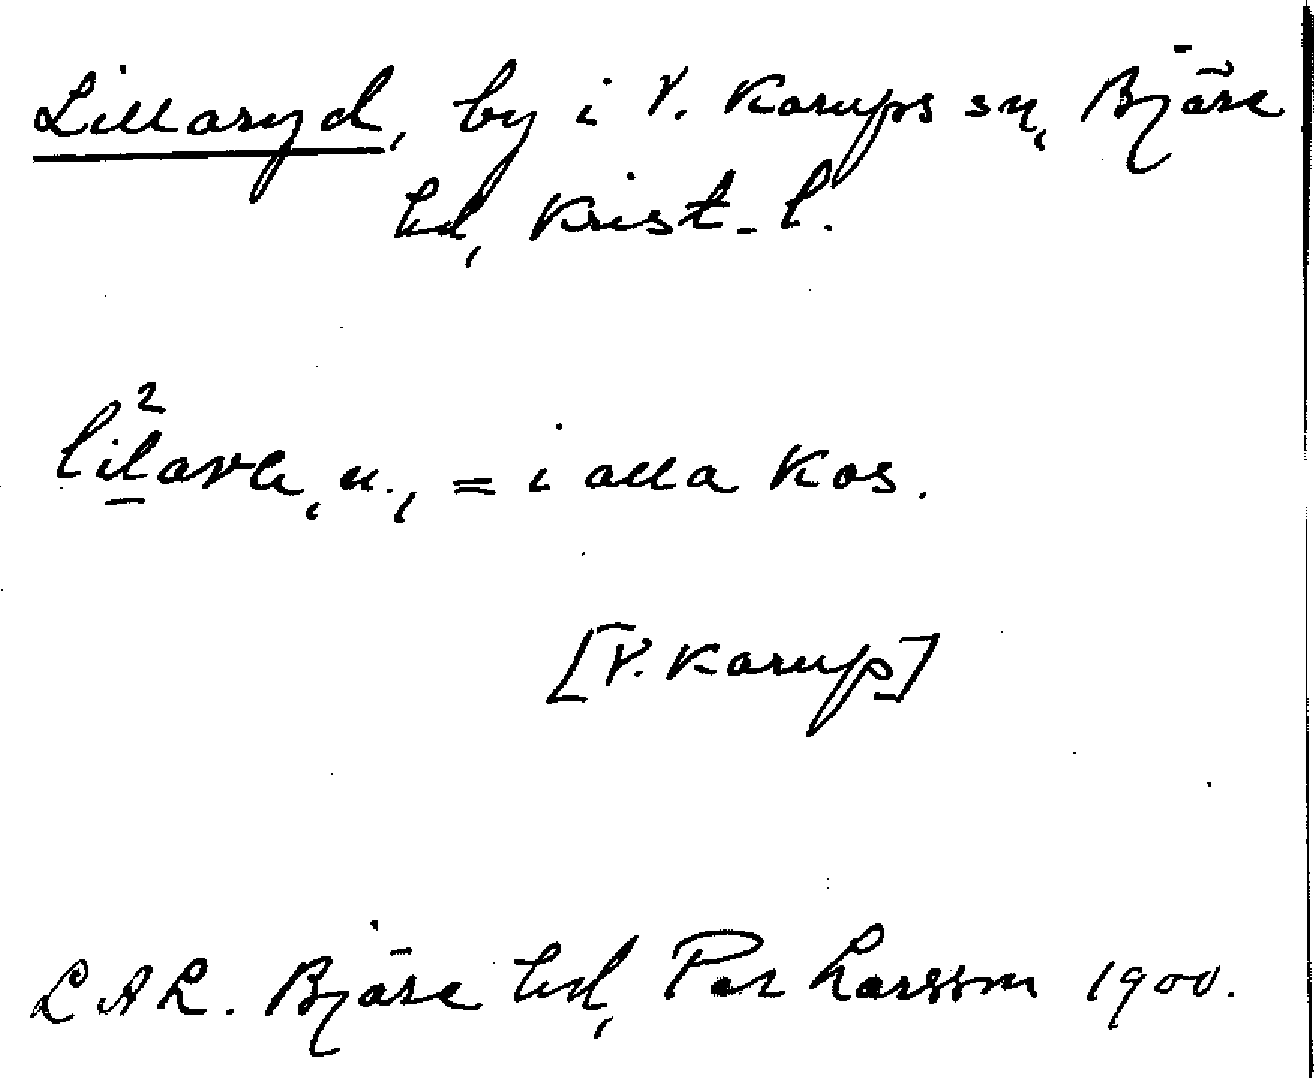 Lillaryd, by i V. Karups sn, Bjäre
hd, Krist. l.
n., = i alla kas.
[V. Karup]
LAL. Bjäre hd, Per Larsson 1900.